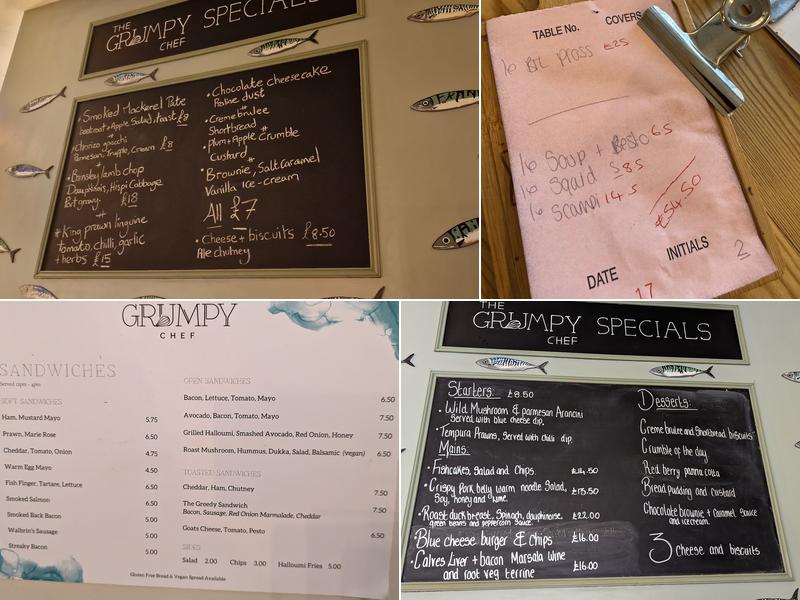 THE
GRUMPY SPECIALS
CHEF
• Smoked Mackerel Pate
beetroot + Apple Salad, toast £8
• Chorizo gnocchi
Parmesan, Truffle, Cream £8
• Barnsley lamb chop
Dauphinois, Hispi Cabbage
Port gravy. £18
• King prawn linguine
tomato, chilli, garlic
+ herbs £15
• Chocolate cheesecake
Praline dust
• Creme brulee
Shortbread
• Plum + Apple Crumble
Custard
• Brownie, Salt Caramel
Vanilla Ice-cream
All £7
• Cheese + biscuits £8.50
Ale chutney
TABLE No. COVERS
£25
Soup + Pesto 6.5
Squid 8.5
Scampi 14.5
£54.50
INITIALS
2
DATE
17
GRUMPY
CHEF
SANDWICHES
Served 12pm - 4pm
SOFT SANDWICHES
Ham, Mustard Mayo 5.75
Prawn, Marie Rose 6.50
Cheddar, Tomato, Onion 4.75
Warm Egg Mayo 4.50
Fish Finger, Tartare, Lettuce 6.50
Smoked Salmon 6.50
Smoked Back Bacon 5.00
Walbrin's Sausage 5.00
Streaky Bacon 5.00
OPEN SANDWICHES
Bacon, Lettuce, Tomato, Mayo 6.50
Avocado, Bacon, Tomato, Mayo 7.50
Grilled Halloumi, Smashed Avocado, Red Onion, Honey 7.50
Roast Mushroom, Hummus, Dukka, Salad, Balsamic (vegan) 6.50
TOASTED SANDWICHES
Cheddar, Ham, Chutney 7.50
The Greedy Sandwich
Bacon, Sausage, Red Onion Marmalade, Cheddar 7.50
Goats Cheese, Tomato, Pesto 6.50
SIDES
Salad 2.00 Chips 3.00 Halloumi Fries 5.00
Gluten Free Bread & Vegan Spread Available
THE
GRUMPY SPECIALS
CHEF
Starters: £8.50
• Wild Mushroom & parmesan Arancini
Served with blue cheese dip.
• Tempura Prawns, Served with chilli dip.
Mains:
• Fishcakes, Salad and Chips. £14.50
• Crispy Pork belly warm noodle Salad,
Soy, honey and Lime. £15.50
• Roast duck breast, Spinach, dauphinoise,
green beans and peppercorn Sauce. £22.00
Blue cheese burger & Chips £16.00
• Calves Liver + bacon Marsala Wine
and root veg terrine £16.00
Desserts:
Creme brulee and Shortbread biscuits
Crumble of the day
Red berry panna cotta
Bread pudding and custard
Chocolate brownie + Caramel Sauce
and icecream.
3 cheese and biscuits